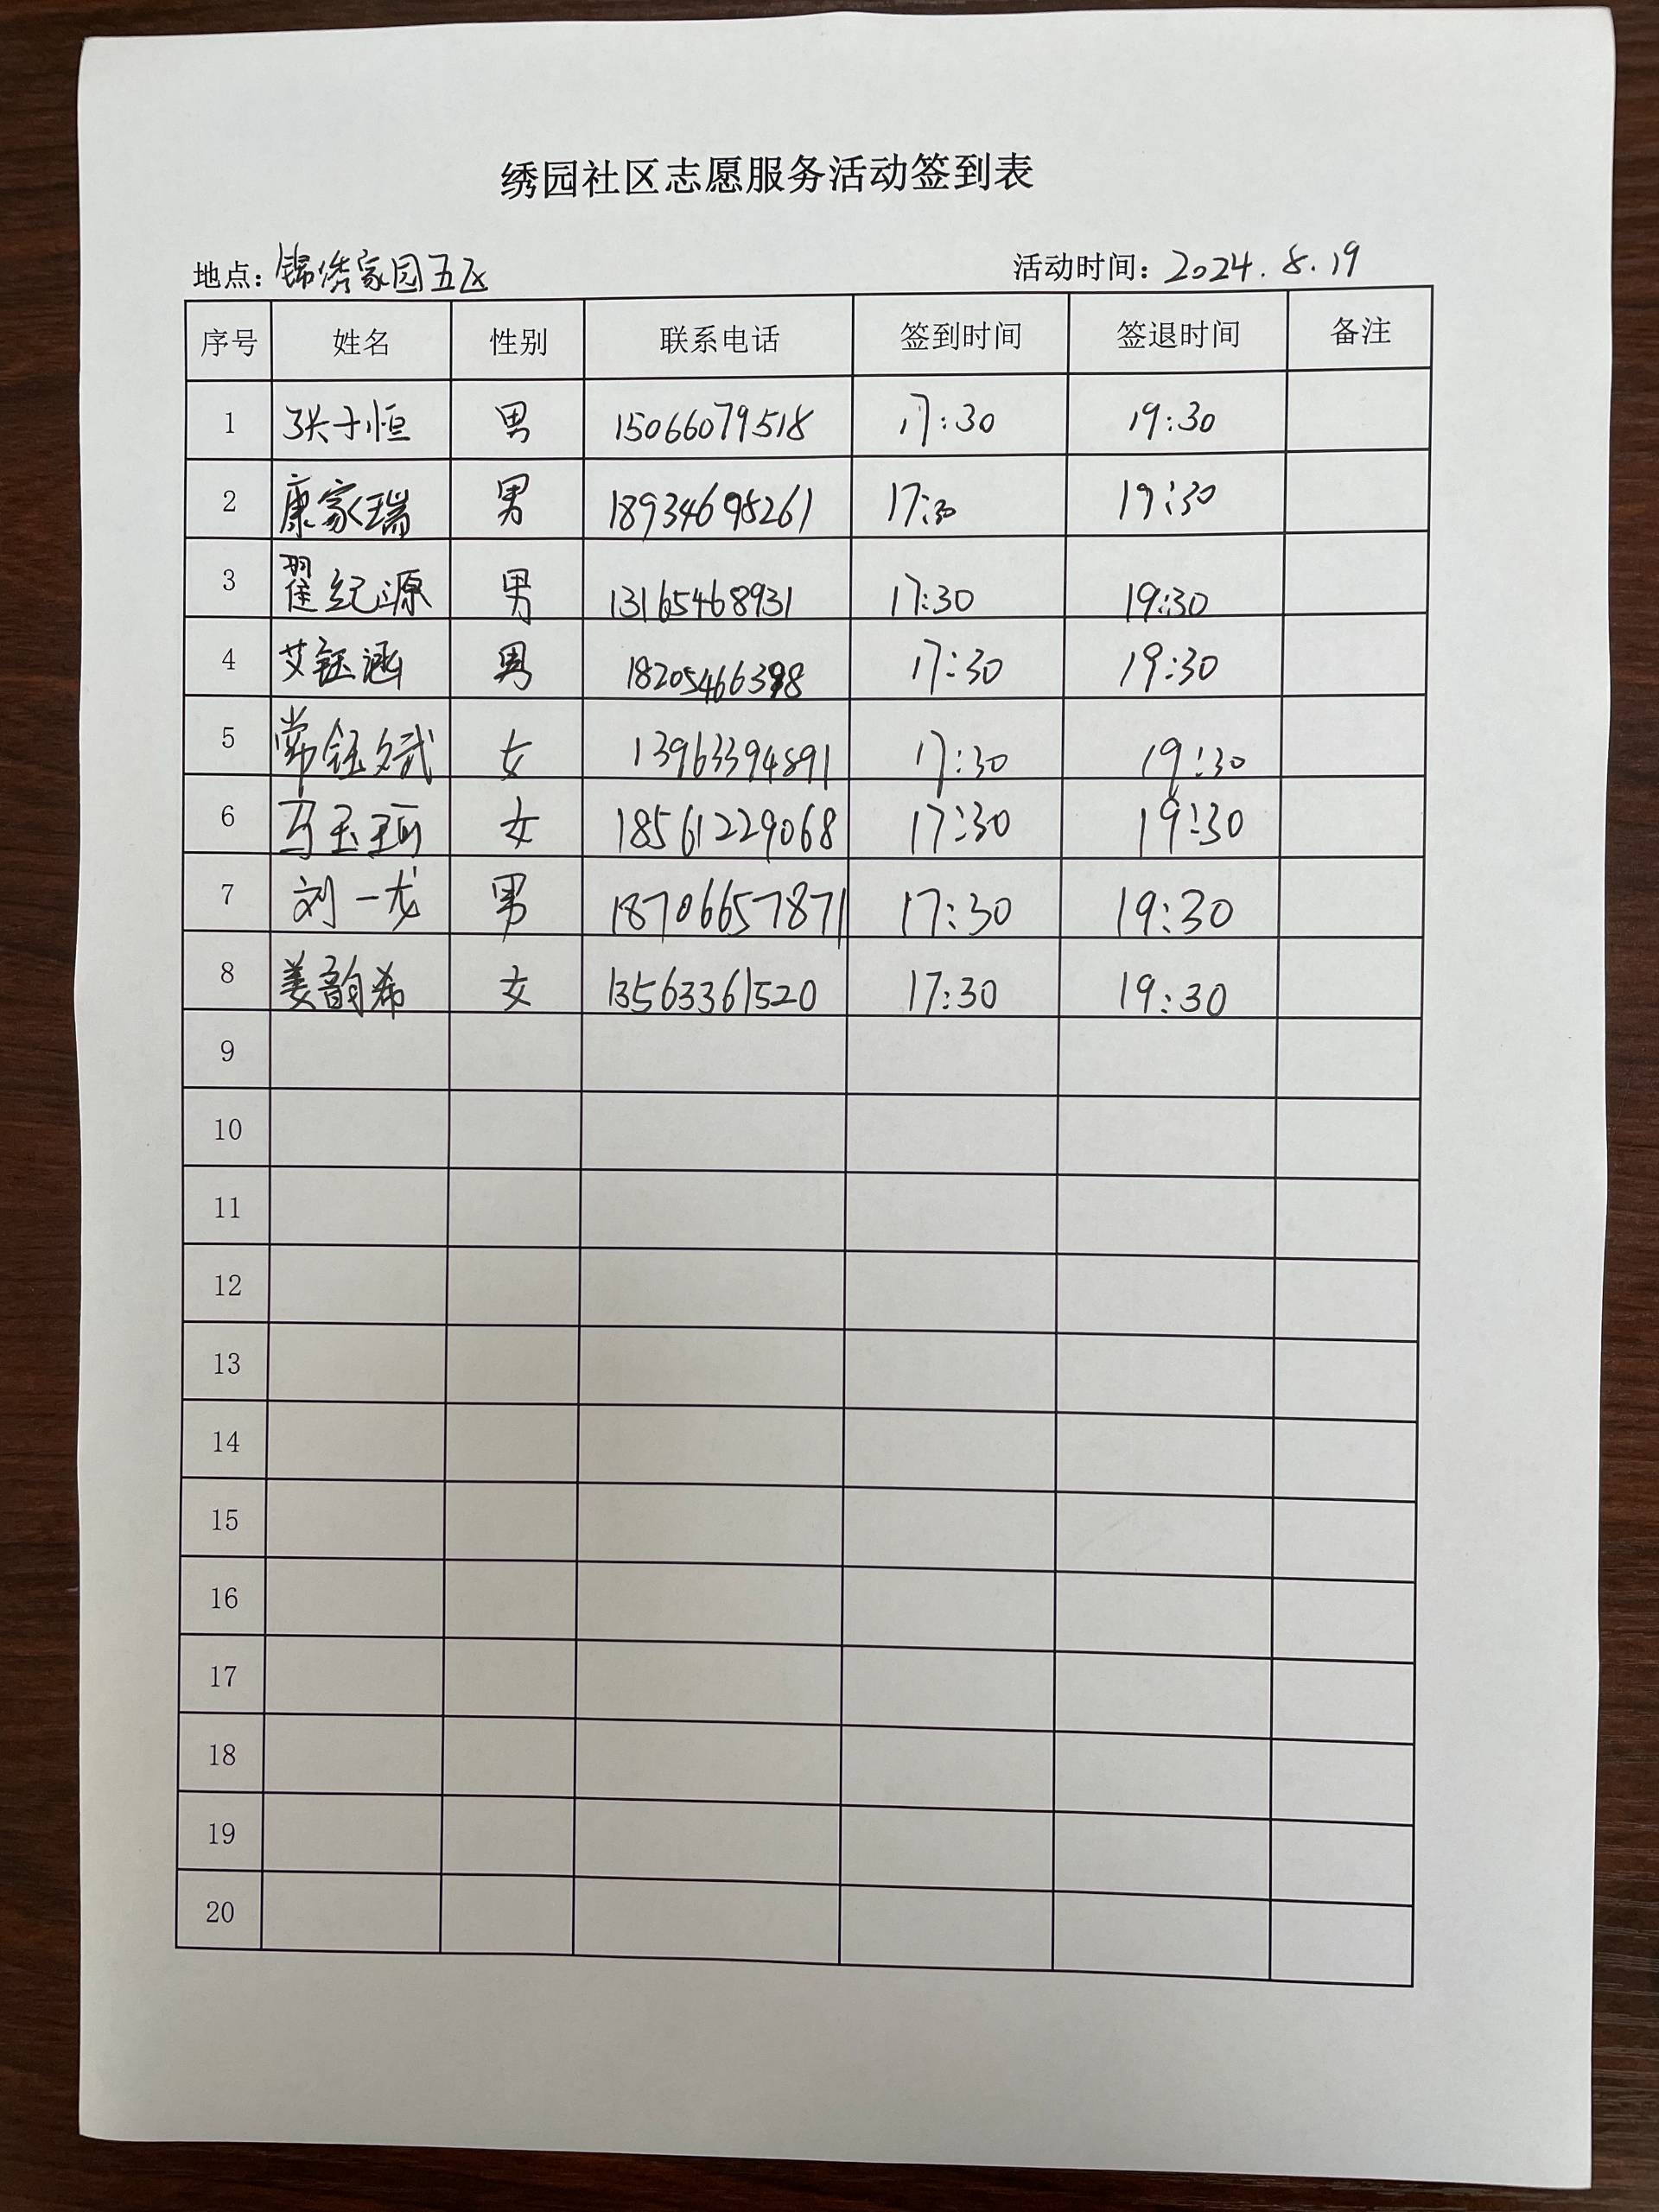 绣园社区志愿服务活动签到表
地点：锦绣家园五区 活动时间：2024.8.19
序号 姓名 性别 联系电话 签到时间 签退时间 备注
1 张于恒 男 15066079518 17:30 19:30
2 康家瑞 男 18934698261 17:30 19:30
3 翟纪源 男 13165468931 17:30 19:30
4 艾钰涵 男 18205466398 17:30 19:30
5 常钰斌 女 13963394891 17:30 19:30
6 马玉珂 女 18561229068 17:30 19:30
7 刘一龙 男 18706657871 17:30 19:30
8 姜韵希 女 13563361520 17:30 19:30
9
10
11
12
13
14
15
16
17
18
19
20